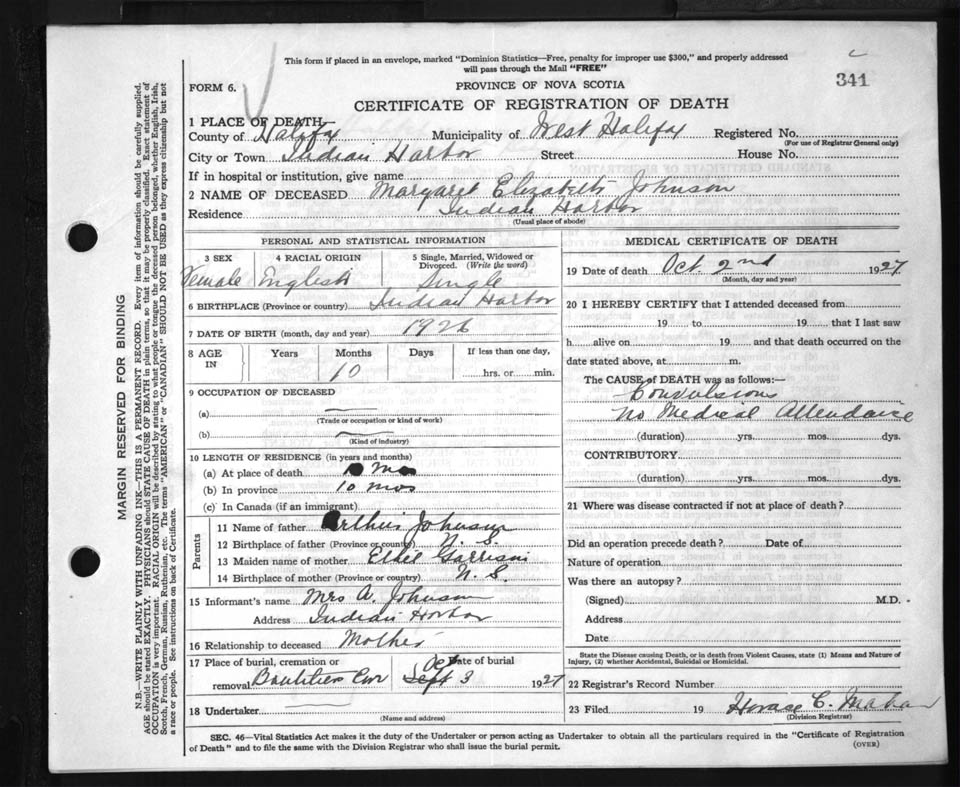 This form if placed in an envelope, marked "Dominion Statistics—Free, penalty for improper use $300," and properly addressed
will pass through the Mail "FREE"
341
FORM 6.
PROVINCE OF NOVA SCOTIA
CERTIFICATE OF REGISTRATION OF DEATH
1 PLACE OF DEATH—
County of Halifax Municipality of West Halifax Registered No.
(For use of Registrar General only)
City or Town Indian Harbor Street House No.
If in hospital or institution, give name
2 NAME OF DECEASED Margaret Elizabeth Johnson
Residence Indian Harbor
(Usual place of abode)
PERSONAL AND STATISTICAL INFORMATION
3 SEX 4 RACIAL ORIGIN 5 Single, Married, Widowed or
Divorced. (Write the word)
Female English Single
6 BIRTHPLACE (Province or country) Indian Harbor
7 DATE OF BIRTH (month, day and year) 1926
8 AGE IN Years Months Days If less than one day,
10 hrs. or min.
9 OCCUPATION OF DECEASED
(a)
(Trade or occupation or kind of work)
(b)
(Kind of industry)
10 LENGTH OF RESIDENCE (in years and months)
(a) At place of death 10 Mos
(b) In province 10 mos
(c) In Canada (if an immigrant)
Parents
11 Name of father Arthur Johnson
12 Birthplace of father (Province or country) N. S.
13 Maiden name of mother Ethel Garrison
14 Birthplace of mother (Province or country) N. S.
15 Informant's name Mrs A. Johnson
Address Indian Harbor
16 Relationship to deceased Mother
17 Place of burial, cremation or Date of burial
removal Boutiliers Oct Sept 3 1927
18 Undertaker
(Name and address)
MEDICAL CERTIFICATE OF DEATH
19 Date of death Oct 2nd 1927
(Month, day and year)
20 I HEREBY CERTIFY that I attended deceased from
19 to 19 that I last saw
h alive on 19 and that death occurred on the
date stated above, at m.
The CAUSE of DEATH was as follows:—
Convulsions
No Medical Attendance
(duration) yrs. mos. dys.
CONTRIBUTORY
(duration) yrs. mos. dys.
21 Where was disease contracted if not at place of death?
Did an operation precede death? Date of
Nature of operation
Was there an autopsy?
(Signed) M.D.
Address
Date
State the Disease causing Death, or in death from Violent Causes, state (1) Means and Nature of
Injury, (2) whether Accidental, Suicidal or Homicidal.
22 Registrar's Record Number
23 Filed 19 Horace C.
(Division Registrar)
SEC. 46—Vital Statistics Act makes it the duty of the Undertaker or person acting as Undertaker to obtain all the particulars required in the "Certificate of Registration
of Death" and to file the same with the Division Registrar who shall issue the burial permit.
(OVER)
MARGIN RESERVED FOR BINDING
N.B.—WRITE PLAINLY WITH UNFADING INK—THIS IS A PERMANENT RECORD. Every item of information should be carefully supplied.
AGE should be stated EXACTLY. PHYSICIANS should STATE CAUSE OF DEATH in plain terms, so that it may be properly classified. Exact statement of
OCCUPATION is very important. RACIAL ORIGIN will be described by stating to what people or tongue the deceased person belonged, whether English, Irish,
Scotch, French, German, Russian, Ruthenian, etc. The terms "AMERICAN" or "CANADIAN" SHOULD NOT BE USED as they express citizenship but not
a race or people. See instructions on back of Certificate.